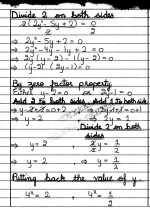 Divide 2 on both sides
2(2y²-5y+2) = 0
2 2
⇒ 2y²-5y+2=0
⇒ 2y²-4y-1y+2=0
⇒ 2y(y-2)-1(y-2)=0
⇒ (y-2)(2y-1)=0
By zero factor property
Either y-2=0 or 2y-1=0
Add 2 to both sides, Add 1 to both side
⇒ y-2+2=0+2 ⇒
⇒ y=2 ⇒ 2y=1
Divide 2 on both sides
⇒ y=2 , 2y = 1
2 2
⇒ y=2 , y= 1
2
Putting back the value of y.
4ˣ=2 , 4ˣ=1
2